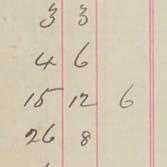 3 3
4 6
15 12 6
26 8